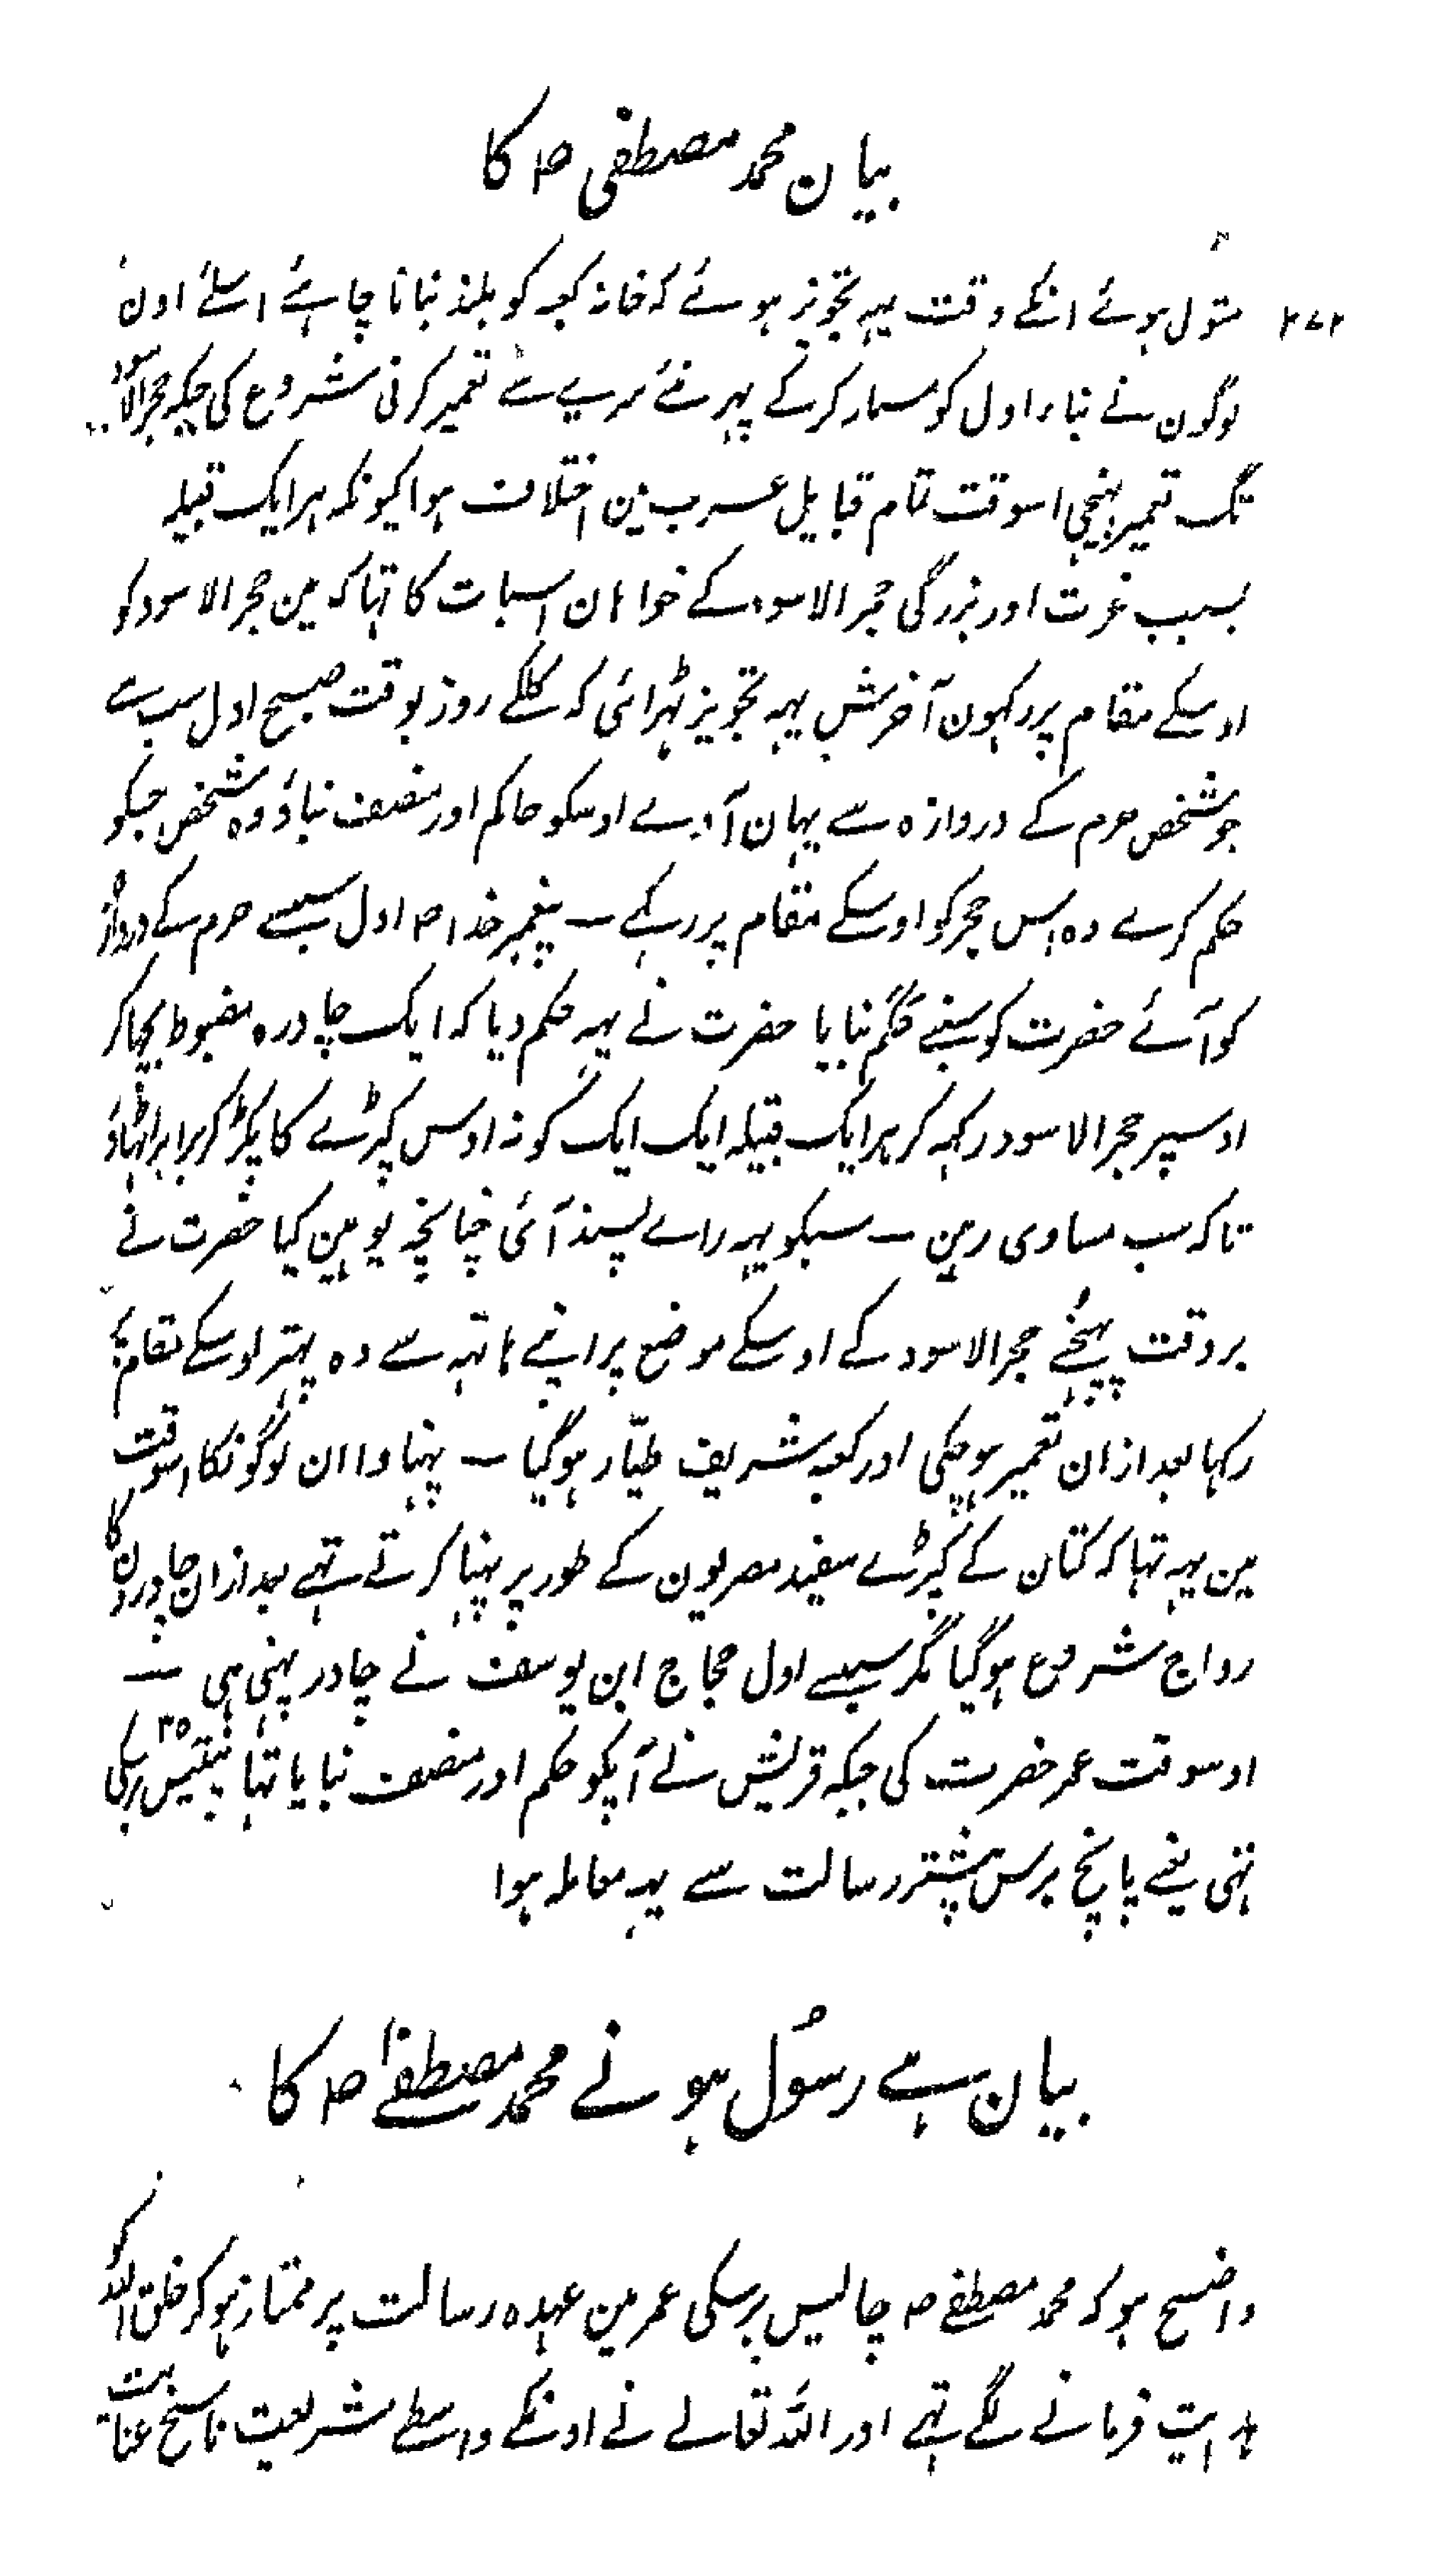 بیان محمد مصطفی ص کا
۲۷۲
متولی ہوئے انکے وقت یہہ تجویز ہوئے کہ خانہ کعبہ کو بلند بنانا چاہئے اسلئے اون
لوگون نے بناء اول کو مسمار کرکے پہر نئے سرے سے تعمیر کرنی شروع کی جبکہ حجر الاسود
تک تعمیر پہنچی اسوقت تمام قبایل عرب مین اختلاف ہوا کیونکہ ہر ایک قبیلہ
بسبب عزت اور بزرگی حجر الاسود کے خواہان اسبات کا تہا کہ مین حجر الاسود کو
اوسکے مقام پر رکہون آخرش یہہ تجویز ٹہرائی کہ کلکے روز بوقت صبح اول سب سے
جو شخص حرم کے دروازہ سے یہان آوے اوسکو حاکم اور منصف بناؤ وہ شخص جسکو
حکم کرے وہ اس حجر کو اوسکے مقام پر رکہے — پیغمبر خدا ص اول سبسے حرم کے دروازہ
کو آئے حضرت کو سبنے حَکَم بنایا حضرت نے یہہ حکم دیا کہ ایک چادرہ مضبوط بچہا کر
اوسپر حجر الاسود رکہہ کر ہر ایک قبیلہ ایک ایک کونہ اوس کپڑے کا پکڑ کر برابر اٹہاؤ
تاکہ سب مساوی رہین — سبکو یہہ راے پسند آئی چنانچہ یوہین کیا حضرت نے
بروقت پہنچنے حجر الاسود کے اوسکے موضع پر اپنے ہاتہہ سے وہ پتہر اوسکے مقام پر
رکہا بعد ازان تعمیر ہوچکی اور کعبہ شریف طیّار ہوگیا — پہناوا ان لوگونکا اسوقت
مین یہہ تہا کہ کتان کے کپڑے سفید مصریون کے طور پر پہنا کرتے تہے بعد ازان چادرون کا
رواج شروع ہوگیا مگر سبسے اول حجاج ابن یوسف نے چادر پہنی ہی —
اوسوقت عمر حضرت کی جبکہ قریش نے آپکو حکم اور منصف بنایا تہا پینتیس ۳۵ برسکی
تہی یعنے پانچ برس پیشتر رسالت سے یہہ معاملہ ہوا
بیان ہے رسُول ہونے محمد مصطفےٰ ص کا
واضح ہو کہ محمد مصطفے ص چالیس برسکی عمر مین عہدہ رسالت پر ممتاز ہوکر خلق اللہ کو
ہدایت فرمانے لگے تہے اور اللہ تعالے نے اونکے واسطے شریعت ناسخ عنایت